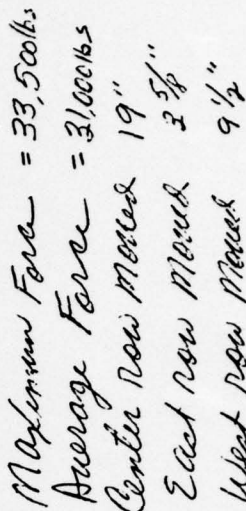 Maximum Force = 33,500 lbs
Average Force = 31,000 lbs
Center row moved 19"
East row moved 3 5/8"
West row moved 9 1/2"